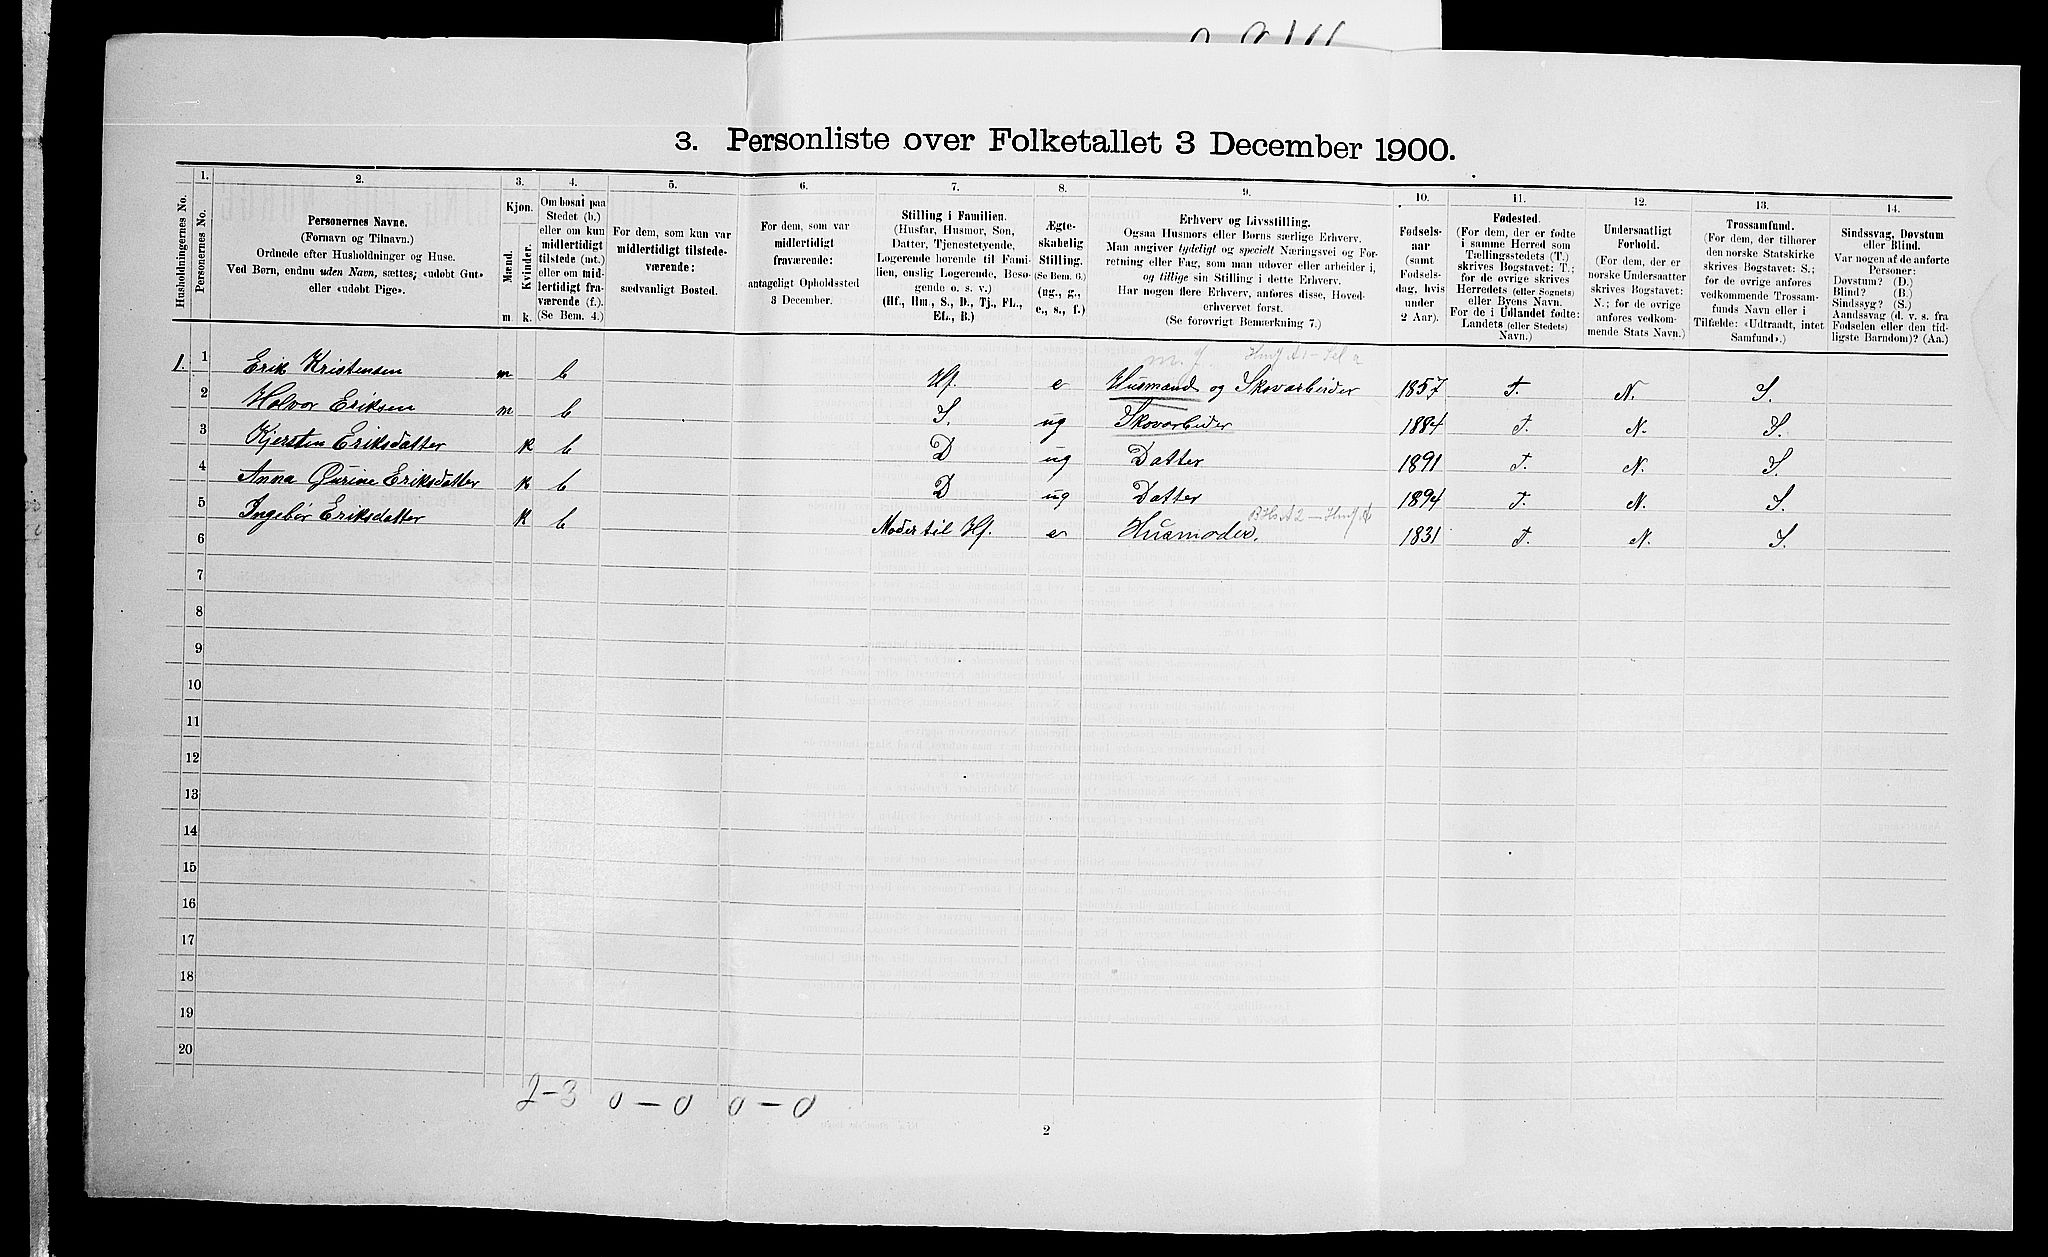 3. Personliste over Folketallet 3 December 1900.
Husholdningernes No.
1.
Personernes No.
2.
Personernes Navne.
(Fornavn og Tilnavn.)
Ordnede efter Husholdninger og Huse.
Ved Børn, endnu uden Navn, sættes: «udøbt Gut»
eller «udøbt Pige».
3.
Kjøn.
Mænd.
Kvinder.
m. k.
4.
Om bosat paa
Stedet (b.)
eller om kun
midlertidigt
tilstede (mt.)
eller om mid-
lertidigt fra-
værende (f.).
(Se Bem. 4.)
5.
For dem, som kun var
midlertidigt tilstede-
værende:
sædvanligt Bosted.
6.
For dem, som var
midlertidigt
fraværende:
antageligt Opholdssted
3 December.
7.
Stilling i Familien.
(Husfar, Husmor, Søn,
Datter, Tjenestetyende,
Logerende hørende til Fami-
lien, enslig Logerende, Besø-
gende o. s. v.)
(Hf., Hm., S., D., Tj., FL.,
EL., B.)
8.
Ægte-
skabelig
Stilling.
(Se Bem. 6.)
(ug., g.,
e., s., f.)
9.
Erhverv og Livsstilling.
Ogsaa Husmors eller Børns særlige Erhverv.
Man angiver tydeligt og specielt Næringsvei og For-
retning eller Fag, som man udøver eller arbeider i,
og tillige sin Stilling i dette Erhverv.
Har nogen flere Erhverv, anføres disse, Hoved-
erhvervet først.
(Se forøvrigt Bemærkning 7.)
10.
Fødsels-
aar
(samt
Fødsels-
dag, hvis
under
2 Aar).
11.
Fødested.
(For dem, der er fødte
i samme Herred som
Tællingsstedets (T.)
skrives Bogstavet: T.;
for de øvrige skrives
Herredets (eller Sognets)
eller Byens Navn.
For de i Udlandet fødte:
Landets (eller Stedets)
Navn.)
12.
Undersaatligt
Forhold.
(For dem, der er
norske Undersaatter
skrives Bogstavet:
N.; for de øvrige
anføres vedkom-
mende Stats Navn.)
13.
Trossamfund.
(For dem, der tilhører
den norske Statskirke
skrives Bogstavet: S.;
for de øvrige anføres
vedkommende Trossam-
funds Navn eller i
Tilfælde: «Udtraadt, intet
Samfund».)
14.
Sindssvag, Døvstum
eller Blind.
Var nogen af de anførte
Personer:
Døvstum? (D.)
Blind? (B.)
Sindssyg? (S.)
Aandssvag (d. v. s. fra
Fødselen eller den tid-
ligste Barndom)? (Aa.)
m. J.
1. 1 Erik Kristensen m b Hf. e Husmand og Skovarbeider 1857 T. N. S.
2 Halvor Eriksen m b S. ug Skovarbeider 1884 T. N. S.
3 Kjersten Eriksdatter k b D ug Datter 1891 T. N. S.
4 Anna Ourine Eriksdatter k b D ug Datter 1894 T. N. S.
5 Ingebør Eriksdatter k b Moder til Hf. e Husmoder. 1831 T. N. S.
6
7
8
9
10
11
12
13
14
15
16
17
18
19
20
2-3 0-0 0-0
2